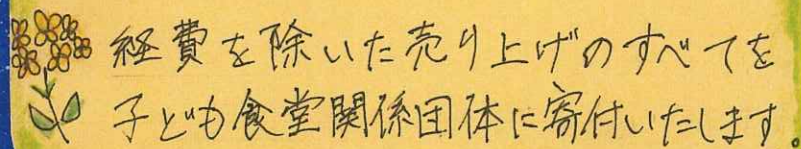 経費を除いた売り上げのすべてを
子ども食堂関係団体に寄付いたします。